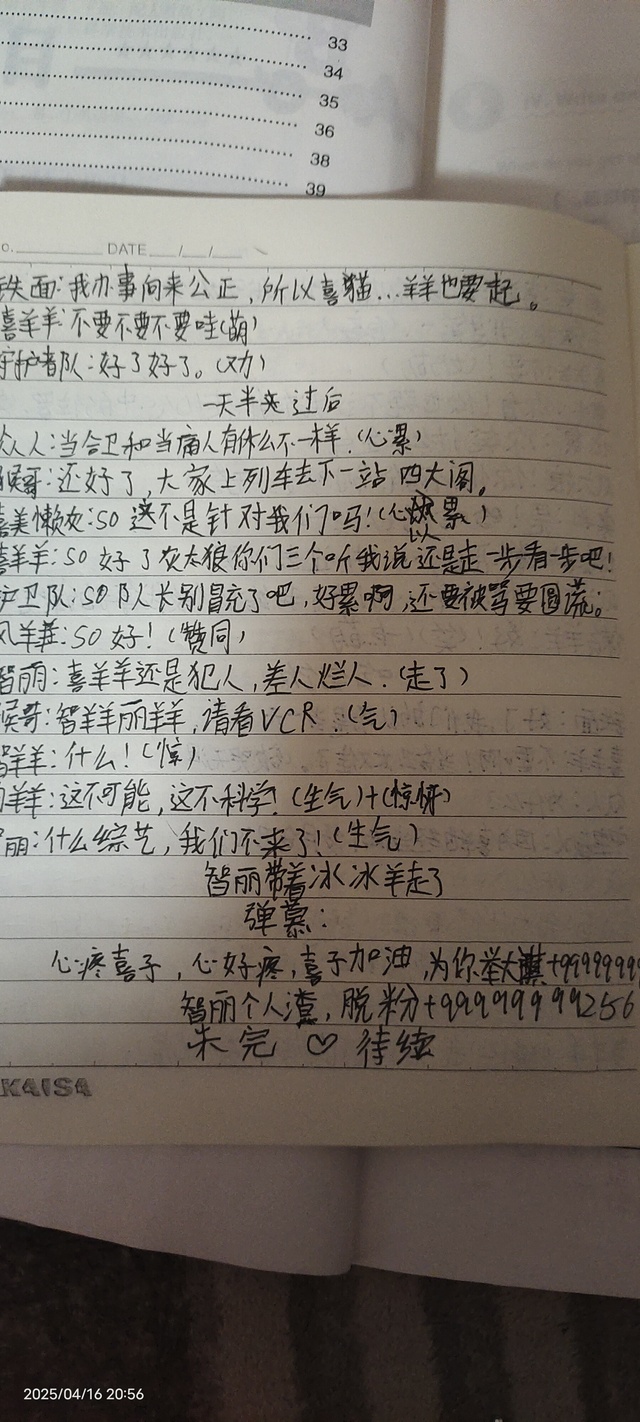 33
34
35
36
38
39
o. DATE / /
铁面：我办事向来公正，所以喜猫…羊羊也要起。
喜羊羊：不要不要不要哇(萌)
守护者队：好了好了。(劝)
一天半夹过后
众人：当合卫和当痛人有什么不一样.(心累)
猴哥：还好了，大家上列车去下一站 四大阁。
喜美懒灰：so 这不是针对我们吗！(心累)
喜羊羊：so 好了灰太狼你们三个听我说 还是走一步看一步吧！
护卫队：so 队长别冒充了吧，好累啊，还要被骂要圆谎；
风羊羊：so 好！(赞同)
智丽：喜羊羊还是犯人，差人烂人.(走了)
猴哥：智羊羊丽羊羊，请看VCR.(气)
智羊羊：什么！(惊)
羊羊：这不可能，这不科学！(生气)+(惊讶)
丽：什么综艺，我们不来了！(生气)
智丽带着冰冰羊走了
弹慕：
心疼喜子，心好疼，喜子加油，为你举大旗+99999999
智丽个人渣，脱粉+99999999256
未完 ♡ 待续
KAISA
2025/04/16 20:56